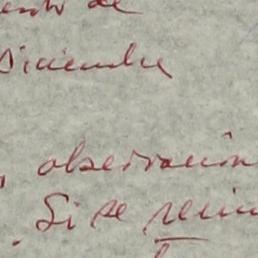 de
Diciembre
observación
Si se